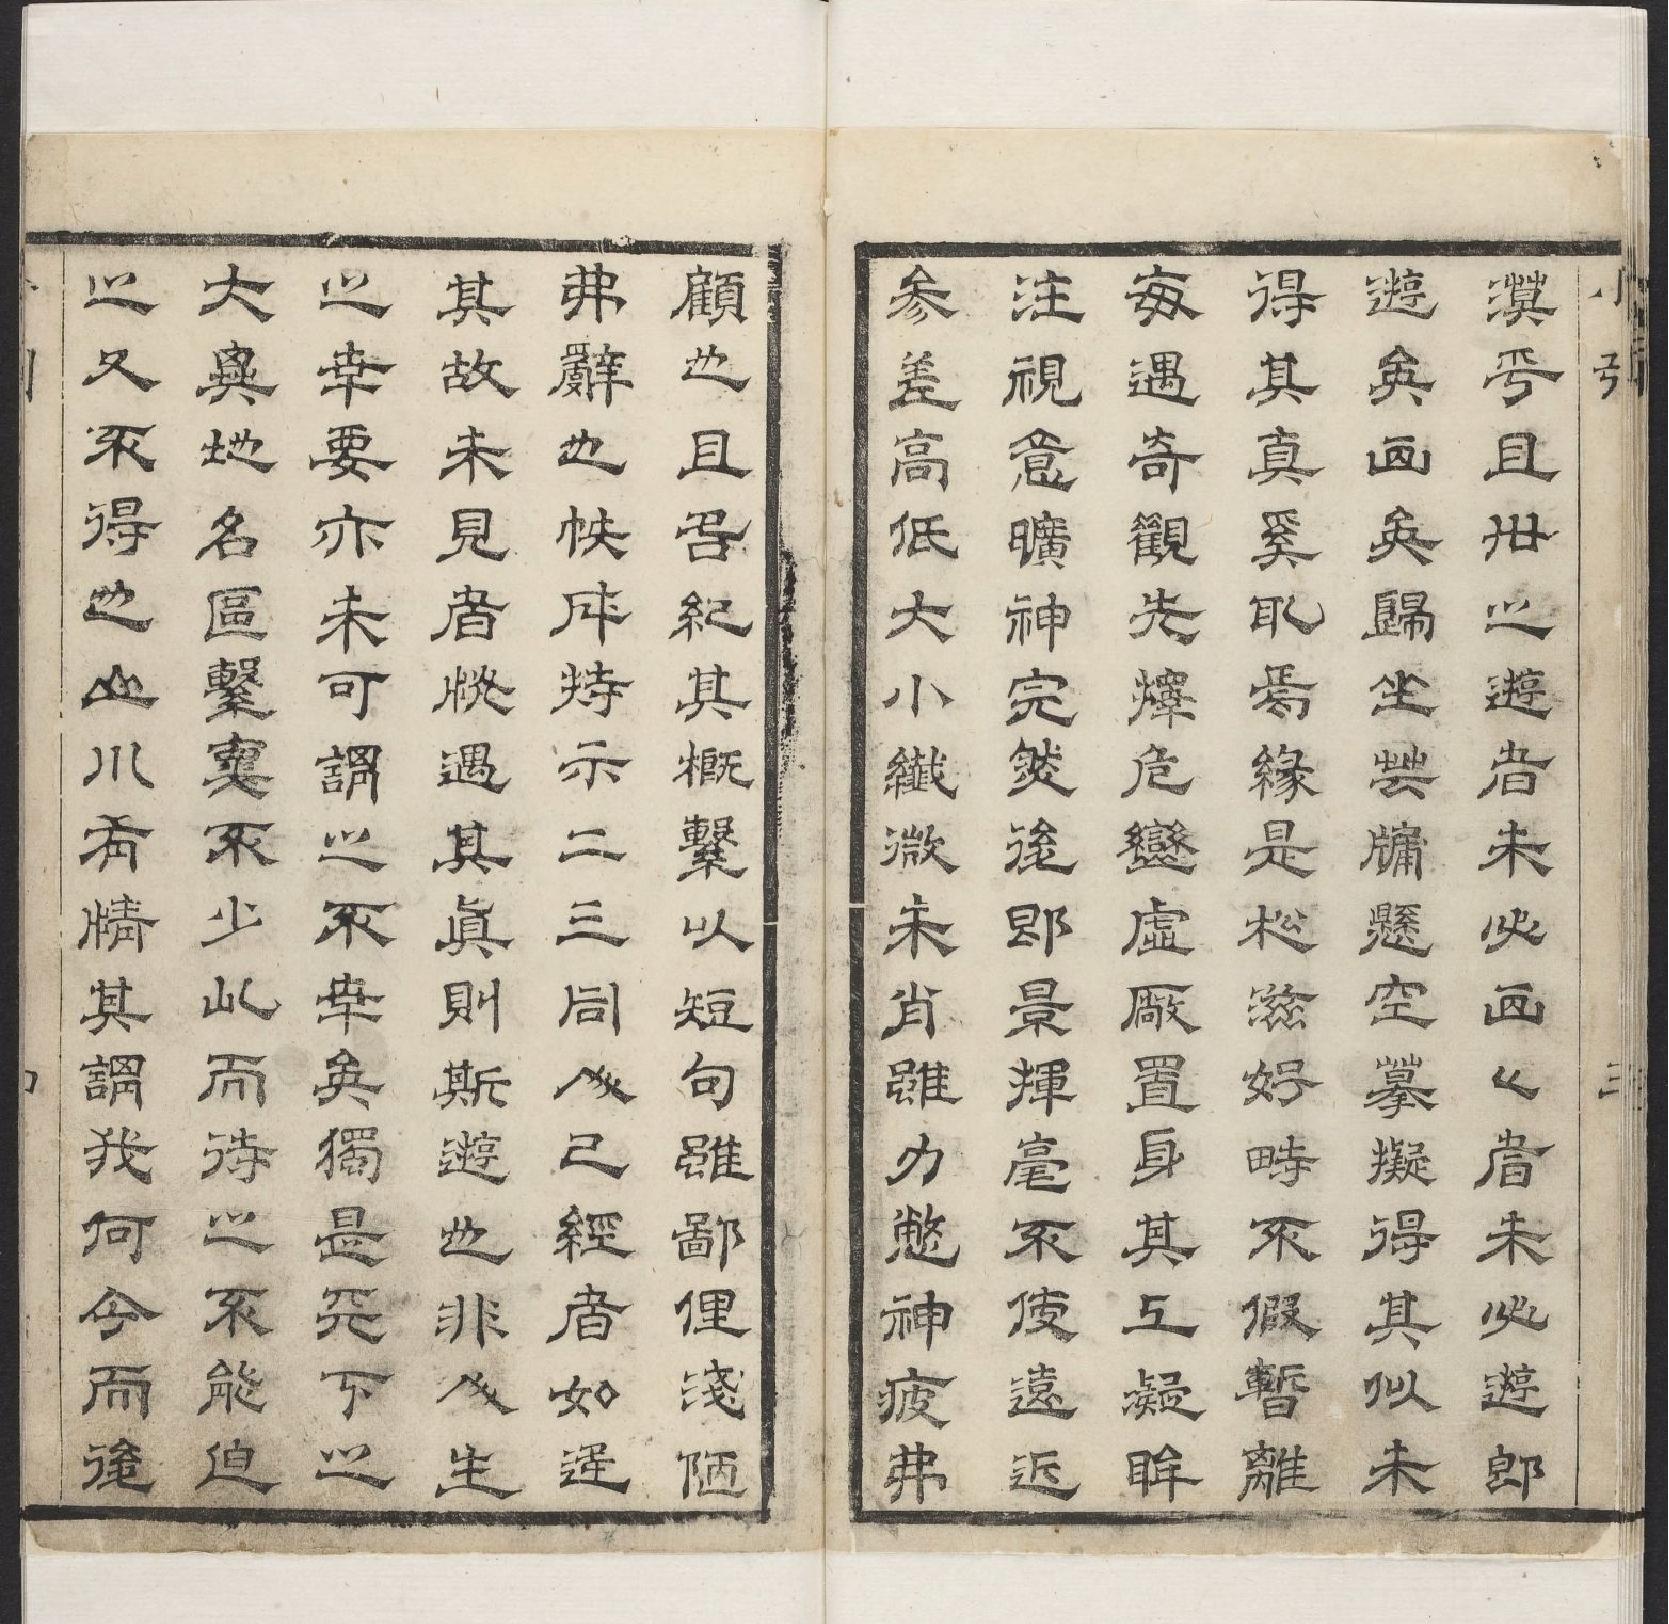 小引 三
漠乎且世之遊者未必画〻者未必遊即
遊矣画矣歸坐芸牕懸空摹擬得其似未
得其真奚取焉緣是松滋好畤不假暫離
每遇奇觀先擇危巒虛厰置身其上凝眸
注視意曠神完然後即景揮毫不使遠近
參差高低大小纖微未肖雖力憊神疲弗
顧也且各紀其概繫以短句雖鄙俚淺陋
弗辭也帙成持示二三同人已經者如逢
其故未見者恍遇其眞則斯遊也非人生
之幸要亦未可謂之不幸矣獨是天下之
大輿地名區繫褱不少此而待之不能迫
之又不得也山川有情其謂我何今而後